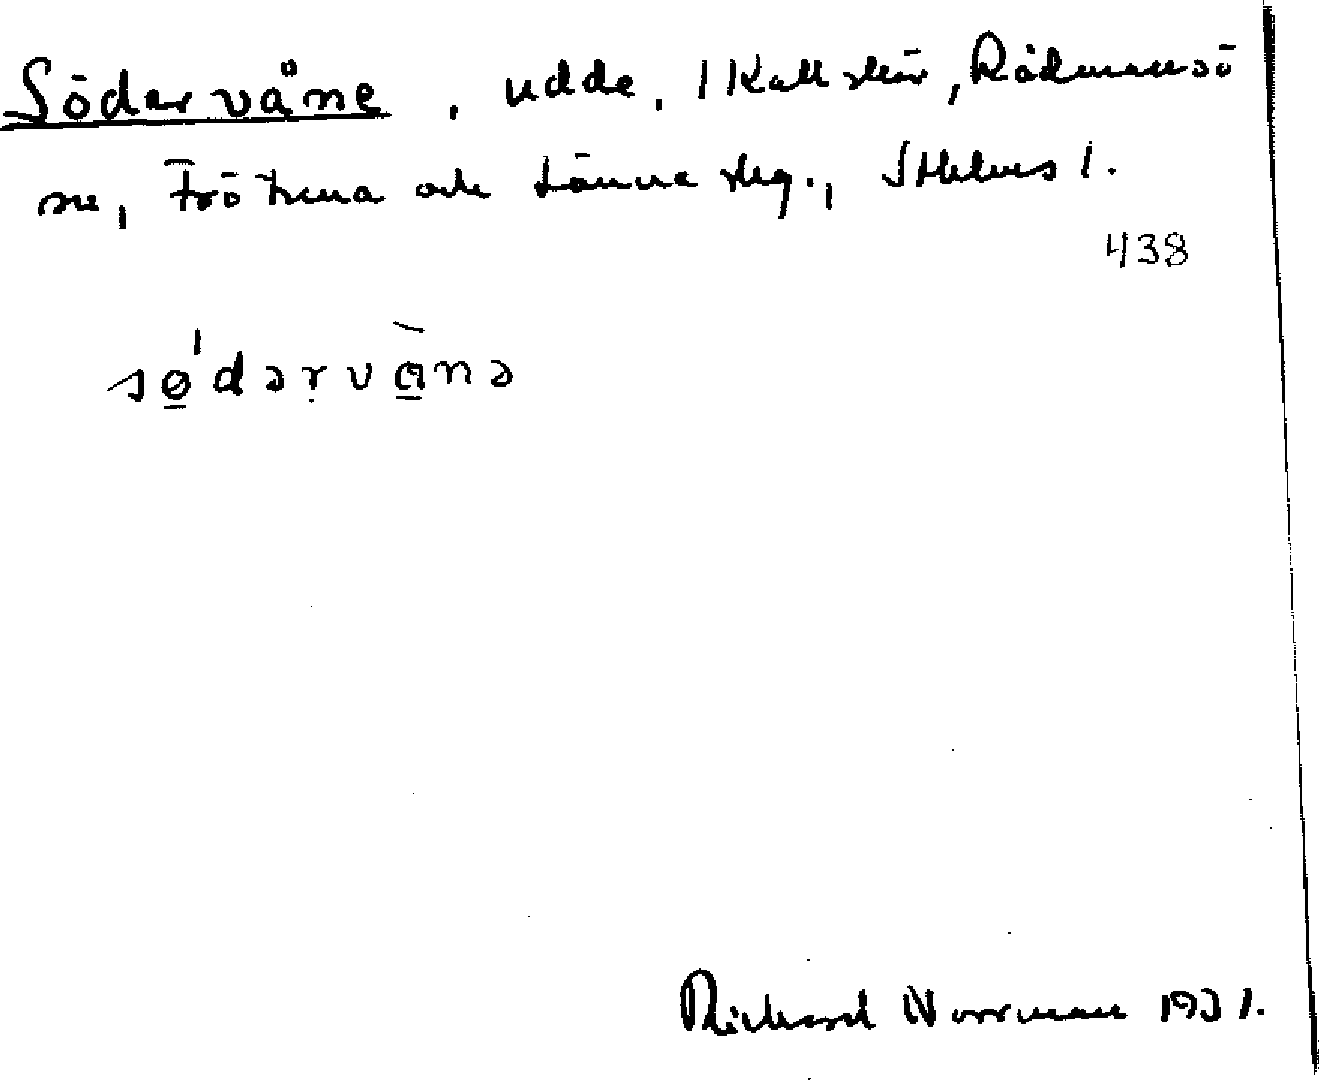 Södervåne, udde, 1 Kallskär, Rådmansö
sn, Frötuna och Länna skg., Sthlms l.
438
sǿ̱dərv<u>a</u>̀nə
Richard Norrman 1931.